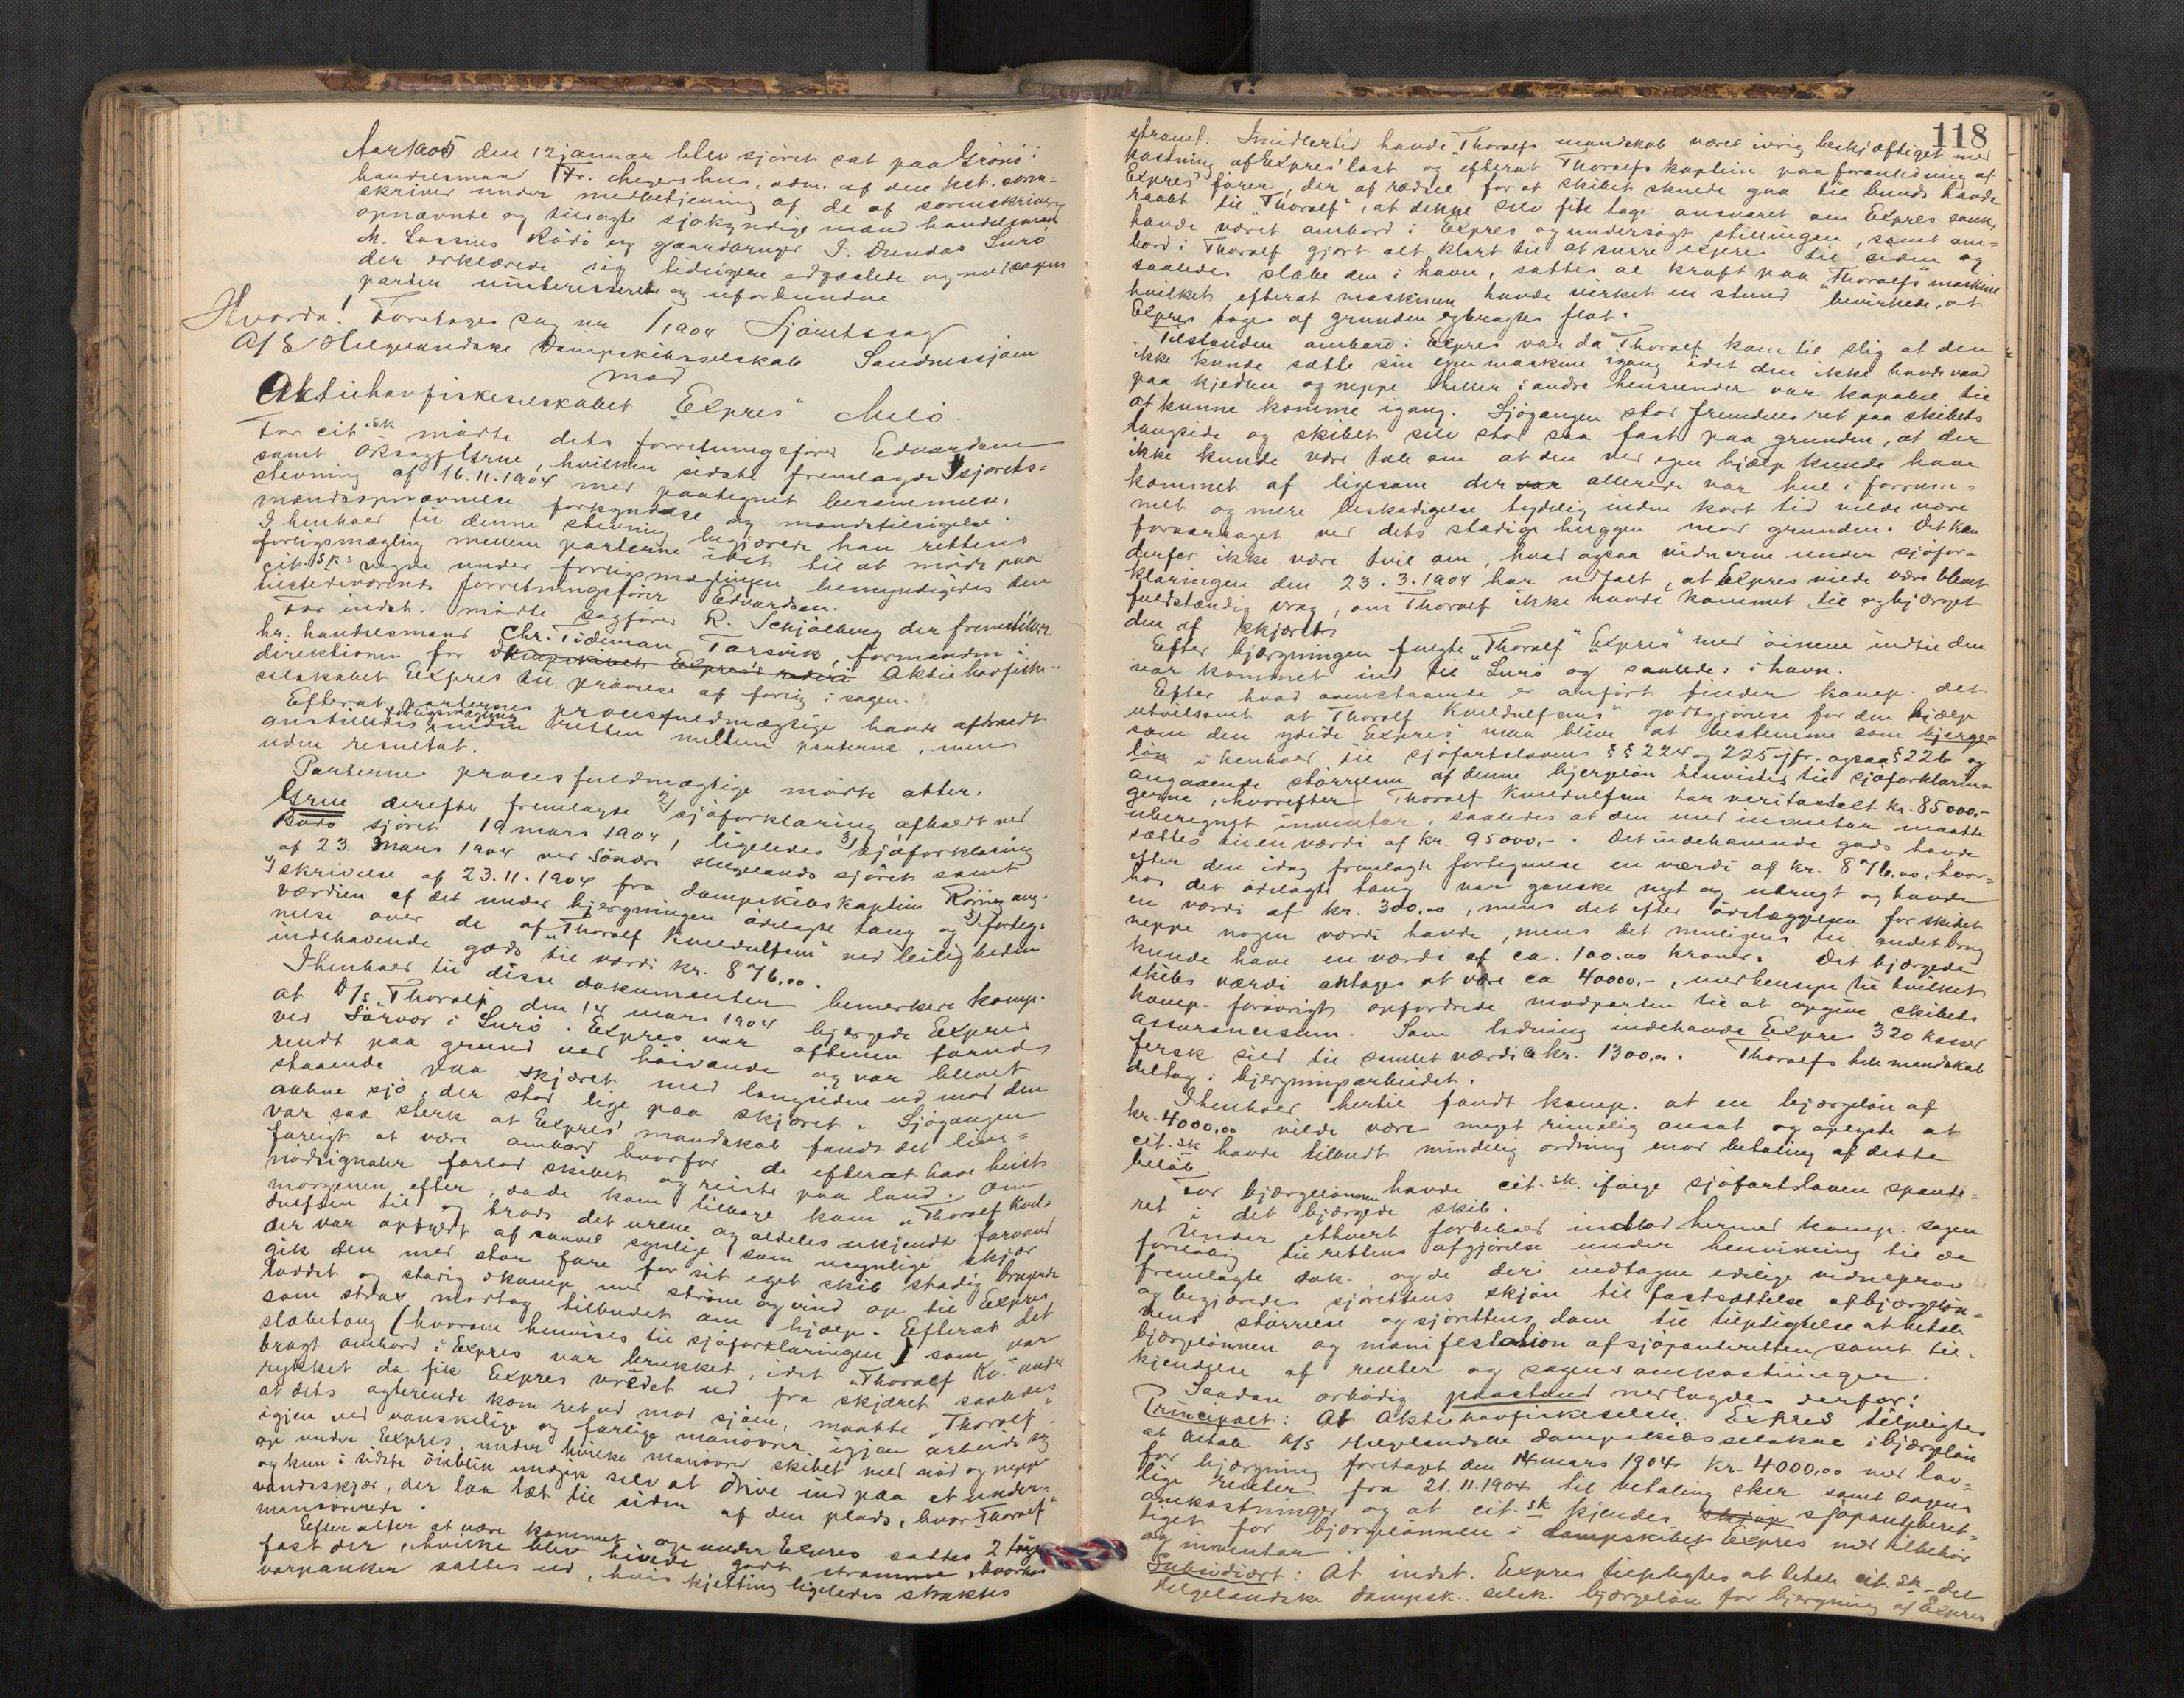 Aar 1905 den 12 januar blev sjöret sat paa Grönö i
handelsmand Fr. Meyers hus, adm. af den kst. soren-
skriver under medbetjening af de af sorenskriveren
opnævnte og tilsagte sjökyndige mænd handelsmand
M. Lossius Rödö og gaardbruger J. Dundas Lurö
der erklærede sig tidligere edfæstede og med sagens
parter uinteresserede og uforbundne
Hvorda! Foretoges sag nr 1/1904 Sjöretssag
A/S Helgelandske Dampskibsselskab Sandnessjöen
mod
Aktiehavfiskeselskabet "Expres" Melö.
For cit.sk mödte dets forretningsförer Edvardsen
samt Oksagf. Grue, hvilken sidste fremlagde 1) sjörets-
stevning af 16.11.1904 med paategnet berammelse,
mændsopnævnelse forkyndelse og mandstilsigelse.
I henhold til denne stevning begjærede han rettens
forligsmægling mellem parterne idet til at möde paa
cit.sks vegne under forligsmæglingen bemyndigedes den
tilstedeværende forretningsförer Edvardsen.
For indst. mödte sagförer R. Schjölberg der fremstiller
hr. handelsmand Chr. Tideman Torsvik, formanden i
direktionen for dampskibet Expres's rederi Aktiehavfiske-
selskabet Expres til prövelse af forlig i sagen.
Efterat parternes procesfuldmægtige havde aftraadt
anstilledes forligsmægling inden retten mellem parterne, men
uden resultat.
Parternes procesfuldmægtige mödte atter.
Grue derefter fremlagde 2) sjöforklaring afholdt ved
Bodö sjöret 19 mars 1904, ligeledes 3) sjöforklaring
af 23. mars 1904 ved Söndre Helgelands sjöret samt
4) skrivelse af 23.11.1904 fra dampskibskaptein Röring ang.
værdien af det under bjergningen ödelagte taug og 5) forteg-
nelse over de af "Thorolf Kveldulfsen" ved leiligheden
indehavende gods til værdi kr. 876.00.
I henhold til disse dokumenter bemerker komp.
at D/S "Thorolf" den 14 mars 1904 bjergede Expres
ved Sörvær i Lurö. Expres var aftenen forud
rendt paa grund ved höivande og var blevet
staaende paa skjæret med langsiden ud mod den
aabne sjö, der stod lige paa skjæret. Sjögangen
var saa sterk at Expres' mandskab fandt det livs-
farligt at være ombord hvorfor de efterat have heist
nödsignaler forlod skibet og reiste paa land. Om
morgenen efter, da de kom tilbage kom "Thorolf Kvel-
dulfsen til og trods det urene og aldeles ukjendte farvand
der var opfyldt af saavel synlige som usynlige skjær
gik den med stor fare for sit eget skib stadig brugende
loddet og stadig i kamp med ström og vind op til Expres,
som strax modtog tilbudet om hjælp. Efterat det
slæbetaug (hvorom henvises til sjöforklaringen) som var
bragt ombord i Expres var brukket, idet "Thorolf Kv." under
rykket da fik Expres vredet ud fra skjæret saaledes
at dets agterende kom ret ud mod sjöen, maatte "Thorolf"
igjen ved vanskelige og farlige manövrer igjen arbeide sig
op under Expres, under hvilke manövrer skibet med nöd og neppe
og kun i sidste öieblik undgik selv at drive ind paa et under-
vandsskjær, der laa tæt til siden af den plads, hvor Thorolf
manövrerede.
Efter atter at være kommet op under Expres sattes 2 tauge
fast der, hvilke blev hivede godt stramme, hvorhos
varpanker sattes ud, hvis kjetting ligeledes straktes
118
stramt. Imidlertid havde Thorolfs mandskab været ivrig beskjæftiget med
kastning af Expres' last og efterat Thorolfs kaptein paa foranledning af
Expres' förer, der af rædsel for at skibet skulde gaa til bunds havde
raabt til "Thorolf", at denne selv fik tage ansvaret om Expres sank,
havde været ombord i Expres og undersögt stillingen, samt om-
bord i Thorolf gjort alt klart til at surre Expres til siden og
saaledes slæbe den i havn, sattes al kraft paa "Thorolfs" maskine
hvilket, efterat maskinen havde virket en stund bevirkede, at
Expres toges af grunden og bragtes flot.
Tilstanden ombord i Expres var da Thorolf kom til slig at den
ikke kunde sætte sin egen maskine igang idet den ikke havde vand
paa kjedlen og neppe heller i andre henseender var kapabel til
at kunne komme igang. Sjögangen stod fremdeles ret paa skibets
langside og skibet selv stod saa fast paa grunden, at der
ikke kunde være tale om at den ved egen hjælp kunde have
kommet af ligesom der var allerede var hul i forrum-
met og mere beskadigelse tydelig inden kort tid vilde være
foraarsaget ved dets stadige huggen mod grunden. Det kan
derfor ikke være tvil om, hvad ogsaa vidnerne under sjöfor-
klaringen den 23.3.1904 har udtalt, at Expres vilde være blevet
fuldstændig vrag, om Thorolf ikke havde kommet til og bjærget
den af skjæret.
Efter bjærgningen fulgte "Thorolf" "Expres" med öinene indtil den
var kommet ind til Lurö og saaledes i havn.
Efter hvad ovenstaaende er anfört finder komp. det
utvilsomt at Thorolf Kveldulfsens" godtgjörelse for den hjælp
som den ydede Expres" maa blive at bestemme som bjerge-
lön i henhold til sjöfartslovens §§ 224 og 225 jfr. ogsaa § 226 og
angaaende störrelsen af denne bjergelön henvistes til sjöforklarin-
gerne, hvorefter Thorolf Kveldulfsen har veritastalt kr. 85000,-
uberegnet inventar, saaledes at den med inventar maatte
sættes til en værdi af kr. 95000,-. Det indehavende gods havde
efter den idag fremlagte fortegnelse en værdi af kr. 876.00, hvor-
hos det ödelagte taug var ganske nyt og ubrugt og havde
en værdi af kr. 300.00, mens det efter ödelæggelsen for skibet
neppe nogen værdi havde, mens det muligens til andet brug
kunde have en værdi af ca. 100.00 kroner. Det bjærgede
skibs værdi antages at være ca 40000,-, med hensyn til hvilket
komp. forövrigt opfordrede modparten til at opgive skibets
assurancesum. Som ladning indehavde Expres 320 kasser
fersk sild til samlet værdi a kr. 1300,00. Thorolfs hele mandskab
deltog i bjærgningsarbeidet.
I henhold hertil fandt komp. at en bjærgelön af
kr. 4000.00 vilde være meget rimelig ansat og oplyste at
cit.sk havde tilbudt mindelig ordning mod betaling af dette
belöb.
For bjærgelönnen havde cit.sk. ifölge sjöfartsloven sjöpante-
ret i det bjærgede skib.
Under ethvert forbehold indlod hermed komp. sagen
foreløbig til rettens afgjörelse under henvisning til de
fremlagte dok. og de deri indtagne edelige vidneprov
og begjæredes sjörettens skjön til fastsættelse af bjærgelön-
nens störrelse og sjörettens dom til tilpligtelse at betale
bjærgelönnen og manifestation af sjöpanteretten samt til-
kjendelse af renter og sagens omkostninger.
Saadan ærbödig paastand nedlagdes derfor:
Principalt: At Aktiehavfiskeselsk. Expres tilpligtes
at betale A/S Helgelandske dampskibsselskab i bjærgelön
for bjærgning foretaget den 14 mars 1904 kr. 4000.00 med lov-
lige renter fra 21.11.1904 til betaling sker samt sagens
omkostninger og at cit.sk kjendes sjöpanteberet-
tiget for bjærgelönnen i dampskibet Expres med tilbehör
og inventar.
Subsidiært: At indst. Expres tilpligtes at betale cit.sk. det
Helgelandske dampsk. selsk. bjærgelön for bjergning af Expres